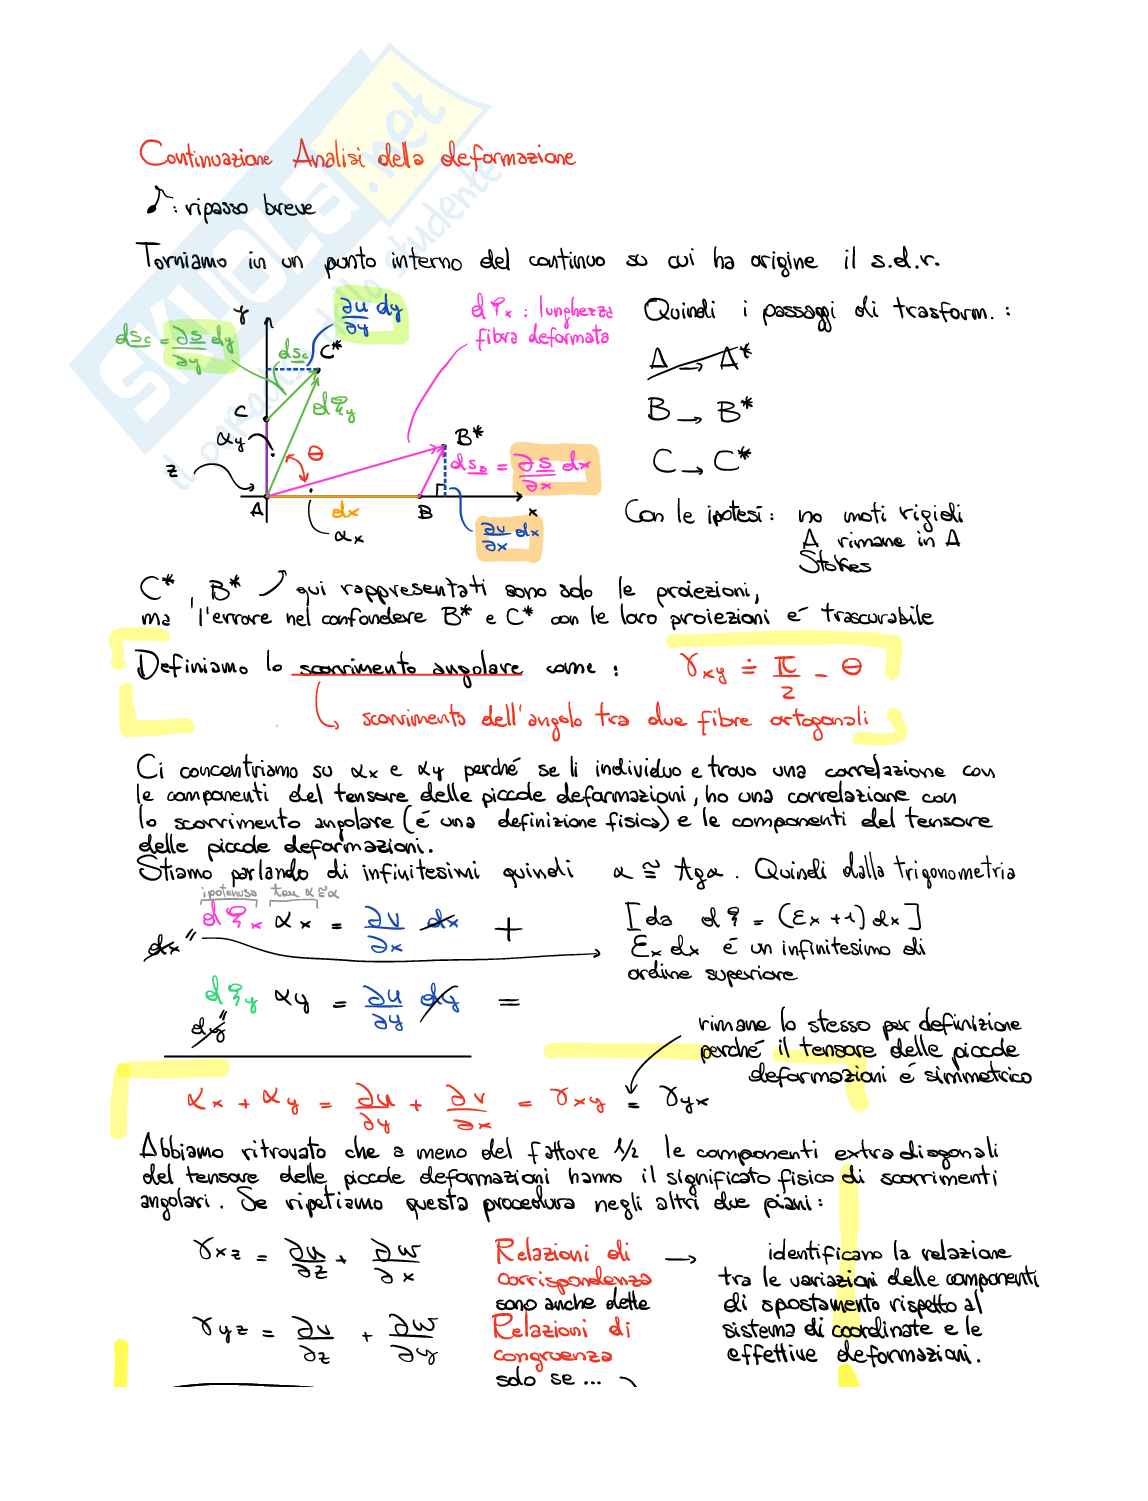 SKUOLA.net
Continuazione Analisi della deformazione
♪: ripasso breve
Torniamo in un punto interno del continuo su cui ha origine il s.d.r.
Y
∂u/∂y dy
dξx : lunghezza
fibra deformata
Quindi i passaggi di trasform. :
dsc = ∂s/∂y dy
dsc
C*
A → A*
dξy
C
αy
B → B*
θ
B*
z
dsB = ∂s/∂x dx
C → C*
A
dx
B
x
αx
∂v/∂x dx
Con le ipotesi: no moti rigidi
A rimane in A
Stokes
C*, B* qui rappresentati sono solo le proiezioni,
ma l'errore nel confondere B* e C* con le loro proiezioni é trascurabile
Definiamo lo scorrimento angolare come : γxy ≐ π/2 - θ
scorrimento dell'angolo tra due fibre ortogonali
Ci concentriamo su αx e αy perché se li individuo e trovo una correlazione con
le componenti del tensore delle piccole deformazioni, ho una correlazione con
lo scorrimento angolare (é una definizione fisica) e le componenti del tensore
delle piccole deformazioni.
Stiamo parlando di infinitesimi quindi α ≅ tgα. Quindi dalla trigonometria
ipotenusa tan α ≅ α
dξx αx = ∂v/∂x dx +
[da dξ = (εx+1)dx]
dx"
εx dx é un infinitesimo di
ordine superiore
dξy αy = ∂u/∂y dy =
dy"
rimane lo stesso per definizione
perché il tensore delle piccole
deformazioni é simmetrico
αx + αy = ∂u/∂y + ∂v/∂x = γxy = γyx
Abbiamo ritrovato che a meno del fattore 1/2 le componenti extradiagonali
del tensore delle piccole deformazioni hanno il significato fisico di scorrimenti
angolari. Se ripetiamo questa procedura negli altri due piani:
γxz = ∂u/∂z + ∂w/∂x
Relazioni di
corrispondenza
sono anche dette
Relazioni di
congruenza
solo se ...
→ identificano la relazione
tra le variazioni delle componenti
di spostamento rispetto al
sistema di coordinate e le
effettive deformazioni.
γyz = ∂v/∂z + ∂w/∂y